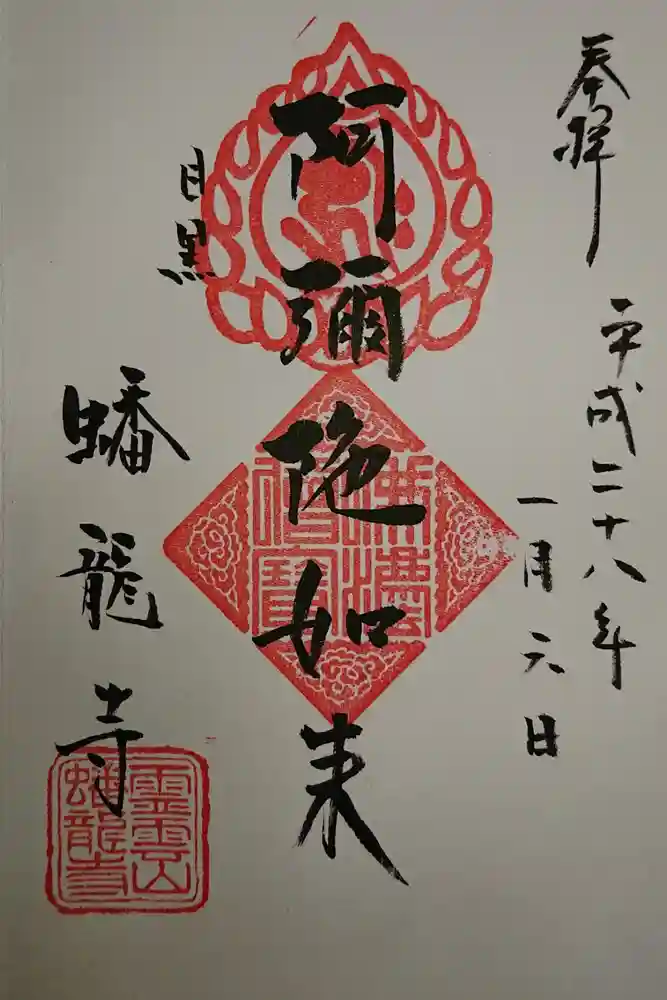 奉拝
平成二十八年
一月六日
阿彌陀如来
佛法僧寶
目黒
蟠龍寺
霊雲山
蟠龍寺